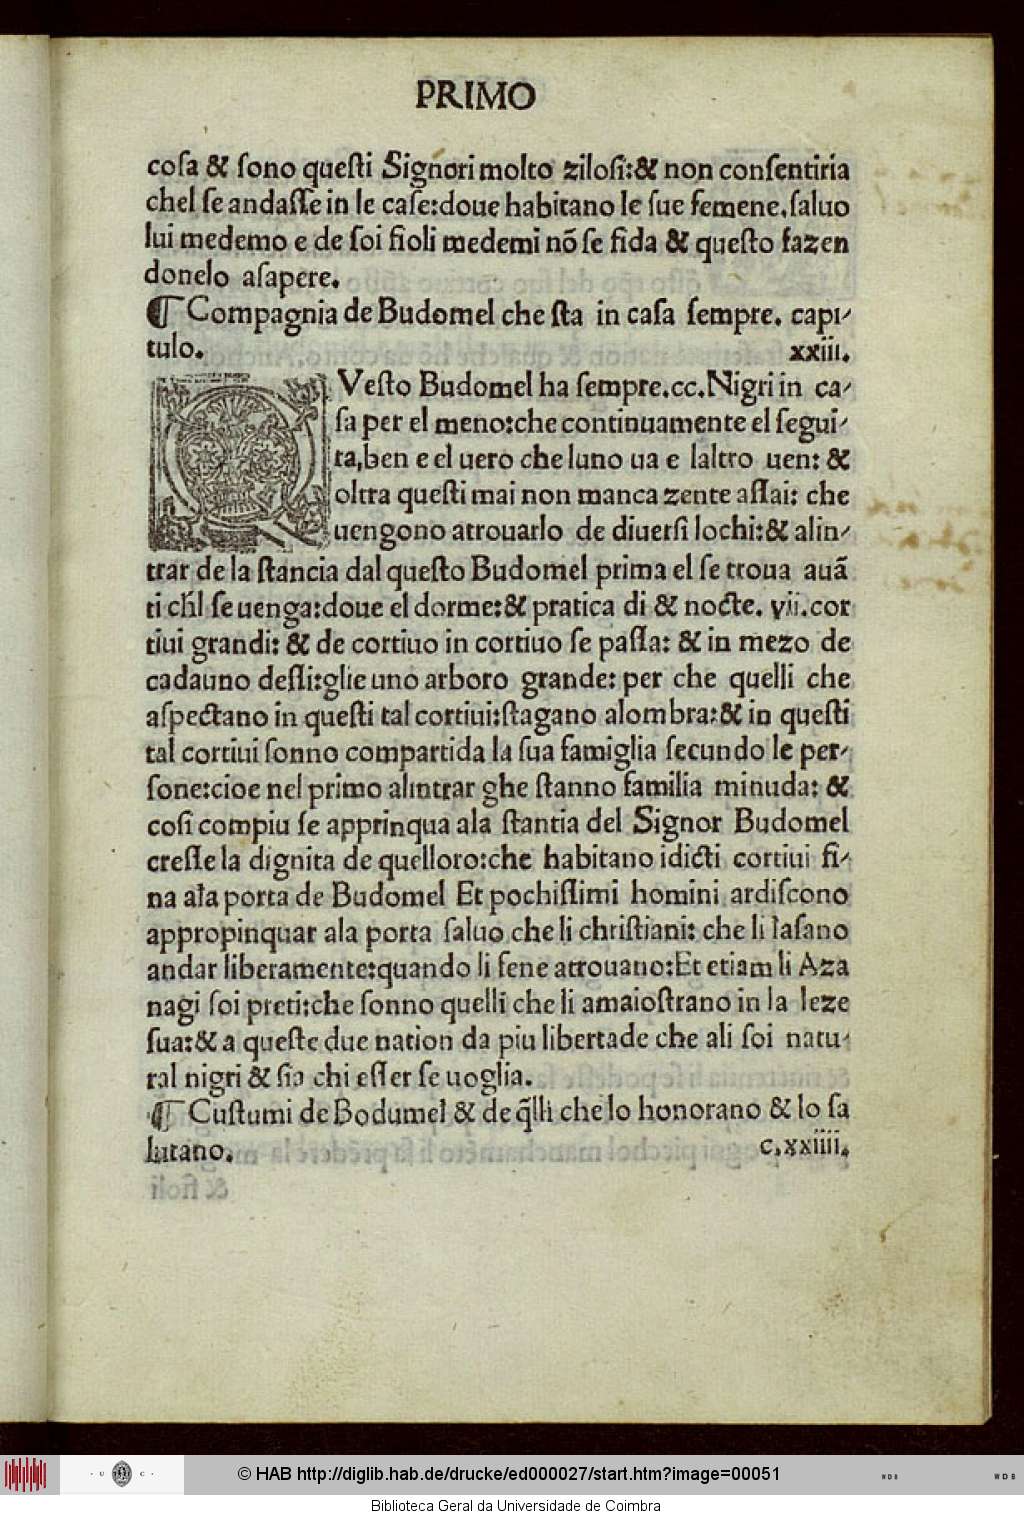 PRIMO
coſa & ſono queſti Signori molto ziloſi:& non conſentiria
chel ſe andaſſe in le caſe:doue habitano le ſue femene.ſaluo
lui medemo e de ſoi fioli medemi nõ ſe fida & queſto fazen
donelo aſapere.
¶ Compagnia de Budomel che ſta in caſa ſempre. capi-
tulo. xxiii.
QVeſto Budomel ha ſempre.cc.Nigri in ca-
ſa per el meno:che continuamente el ſegui-
ta,ben e el uero che luno ua e laltro uen: &
oltra queſti mai non manca zente aſſai: che
uengono atrouarlo de diuerſi lochi:& alin-
trar de la ſtancia dal queſto Budomel prima el ſe troua auã
ti ch̃l ſe uenga:doue el dorme:& pratica di & nocte. vii.cor
tiui grandi: & de cortiuo in cortiuo ſe paſſa: & in mezo de
cadauno deſſi:glie uno arboro grande: per che quelli che
aſpectano in queſti tal cortiui:ſtagano alombra:& in queſti
tal cortiui ſonno compartida la ſua famiglia ſecundo le per-
ſone:cioe nel primo alintrar ghe ſtanno familia minuda: &
coſi compiu ſe apprinqua ala ſtantia del Signor Budomel
creſſe la dignita de quelloro:che habitano idicti cortiui fi-
na ala porta de Budomel Et pochiſſimi homini ardiſcono
appropinquar ala porta ſaluo che li chriſtiani: che li laſano
andar liberamente:quando li ſene atrouano:Et etiam li Aza
nagi ſoi preti:che ſonno quelli che li amaioſtrano in la leze
ſua:& a queſte due nation da piu libertade che ali ſoi natu-
ral nigri & ſia chi eſſer ſe uoglia.
¶ Cuſtumi de Bodumel & de q̃lli che lo honorano & lo ſa
lutano. c.xxiiii.
© HAB http://diglib.hab.de/drucke/ed000027/start.htm?image=00051
Biblioteca Geral da Universidade de Coimbra